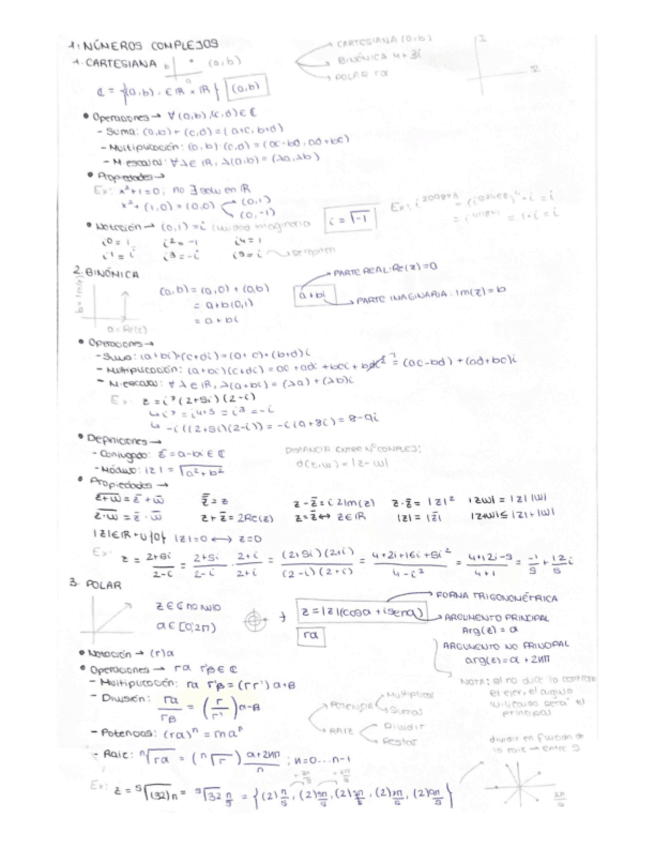 1. NÚMEROS COMPLEJOS
CARTESIANA (a,b)
BINÓNICA 4+3i
POLAR rα
1. CARTESIANA (a,b)
ℂ = {(a,b) ∈ ℝ x ℝ} (a,b)
• Operaciones → ∀(a,b),(c,d) ∈ ℂ
- Suma: (a,b)+(c,d)=(a+c, b+d)
- Multiplicación: (a,b)·(c,d)=(ac-bd, ad+bc)
- N.escalar: ∀λ∈ℝ, λ(a,b)=(λa, λb)
• Propiedades →
Ex: x²+1=0; no ∃ soluc en ℝ
x²+(1,0)=(0,0) (0,1)
(0,-1)
• Notación → (0,1)=i (unidad imaginaria) i=√-1
i⁰=1 i²=-1 i⁴=1
i¹=i i³=-i i⁵=i
2. BINÓNICA
(a,b)=(a,0)+(0,b)
= a+b(0,1)
= a+bi
a+bi
PARTE REAL: Re(z)=a
PARTE IMAGINARIA: Im(z)=b
b=Im(z)
a=Re(z)
• Operaciones →
- Suma: (a+bi)+(c+di)=(a+c)+(b+d)i
- Multiplicación: (a+bi)(c+di)=ac+adi+bci+bdi² = (ac-bd)+(ad+bc)i
- N.escalar: ∀λ∈ℝ, λ(a+bi)=(λa)+(λb)i
Ex: z=i⁷(2+5i)(2-i)
i⁷=i⁴⁺³=i³=-i
-i((2+5i)(2-i))=-i(9+8i)=8-9i
• Definiciones →
- Conjugado: z̄=a-bi∈ℂ
- Módulo: |z|=√a²+b²
DISTANCIA ENTRE Nº COMPLEJ:
d(z,w)=|z-w|
• Propiedades →
z̅+̅w̅=z̄+w̄ z̿=z z-z̄=i2Im(z) z·z̄=|z|² |zw|=|z||w|
z̅·̅w̅=z̄·w̄ z+z̄=2Re(z) z=z̄↔z∈ℝ |z|=|z̄| |z+w|≤|z|+|w|
|z|∈ℝ+∪{0} |z|=0 ↔ z=0
Ex: z = 2+5i/2-i = 2+5i/2-i · 2+i/2+i = (2+5i)(2+i)/(2-i)(2+i) = /4-i² = /4+1 = -1/5 + 12/5 i
3. POLAR
z∈ℂ no nulo
α∈[0,2π)
z=|z|(cosα+isenα)
rα
FORMA TRIGONOMÉTRICA
ARGUMENTO PRINCIPAL
Arg(z)=α
ARGUMENTO NO PRINCIPAL
arg(z)=α+2πn
• Notación → (r)α
• Operaciones → rα r'β∈ℂ
- Multiplicación: rα r'β=(rr')α+β
- División: rα/r'β = (r/r')α-β
- Potencias: (rα)ⁿ=
- Raíz: ⁿ√rα = (ⁿ√r) α+2πn/n ; n=0...n-1
POTENCIA Multiplicar
Sumar
RAIZ Dividir
Restar
NOTA: si no dice lo contrario
el ejer, el ángulo
utilizado será el
principal
dividir en función de
la raíz → entre 5
Ex: z = ⁵√(32)π = ⁵√32 π/5
2π/5